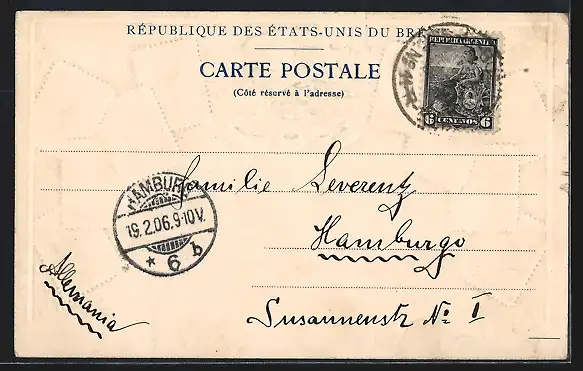 RÉPUBLIQUE DES ÉTATS-UNIS DU BRÉ
CARTE POSTALE
(Côté réservé à l'adresse)
REPUBLICA ARGENTINA
6 CENTAVOS 6
HAMBURG
19.2.06.9-10V.
* 6 b
Familie Leverentz
Hamburgo
Allemania
Susannenstr No I